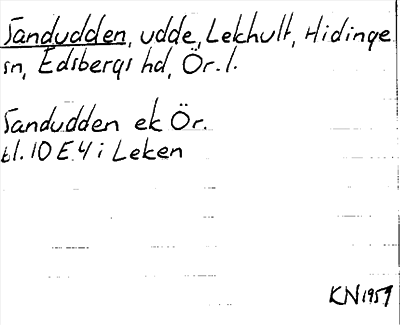 Sandudden, udde, Lekhult, Hidinge
sn, Edsbergs hd, Ör. l.
Sandudden ek Ör.
bl. 10 E 4 i Leken
KN 1959